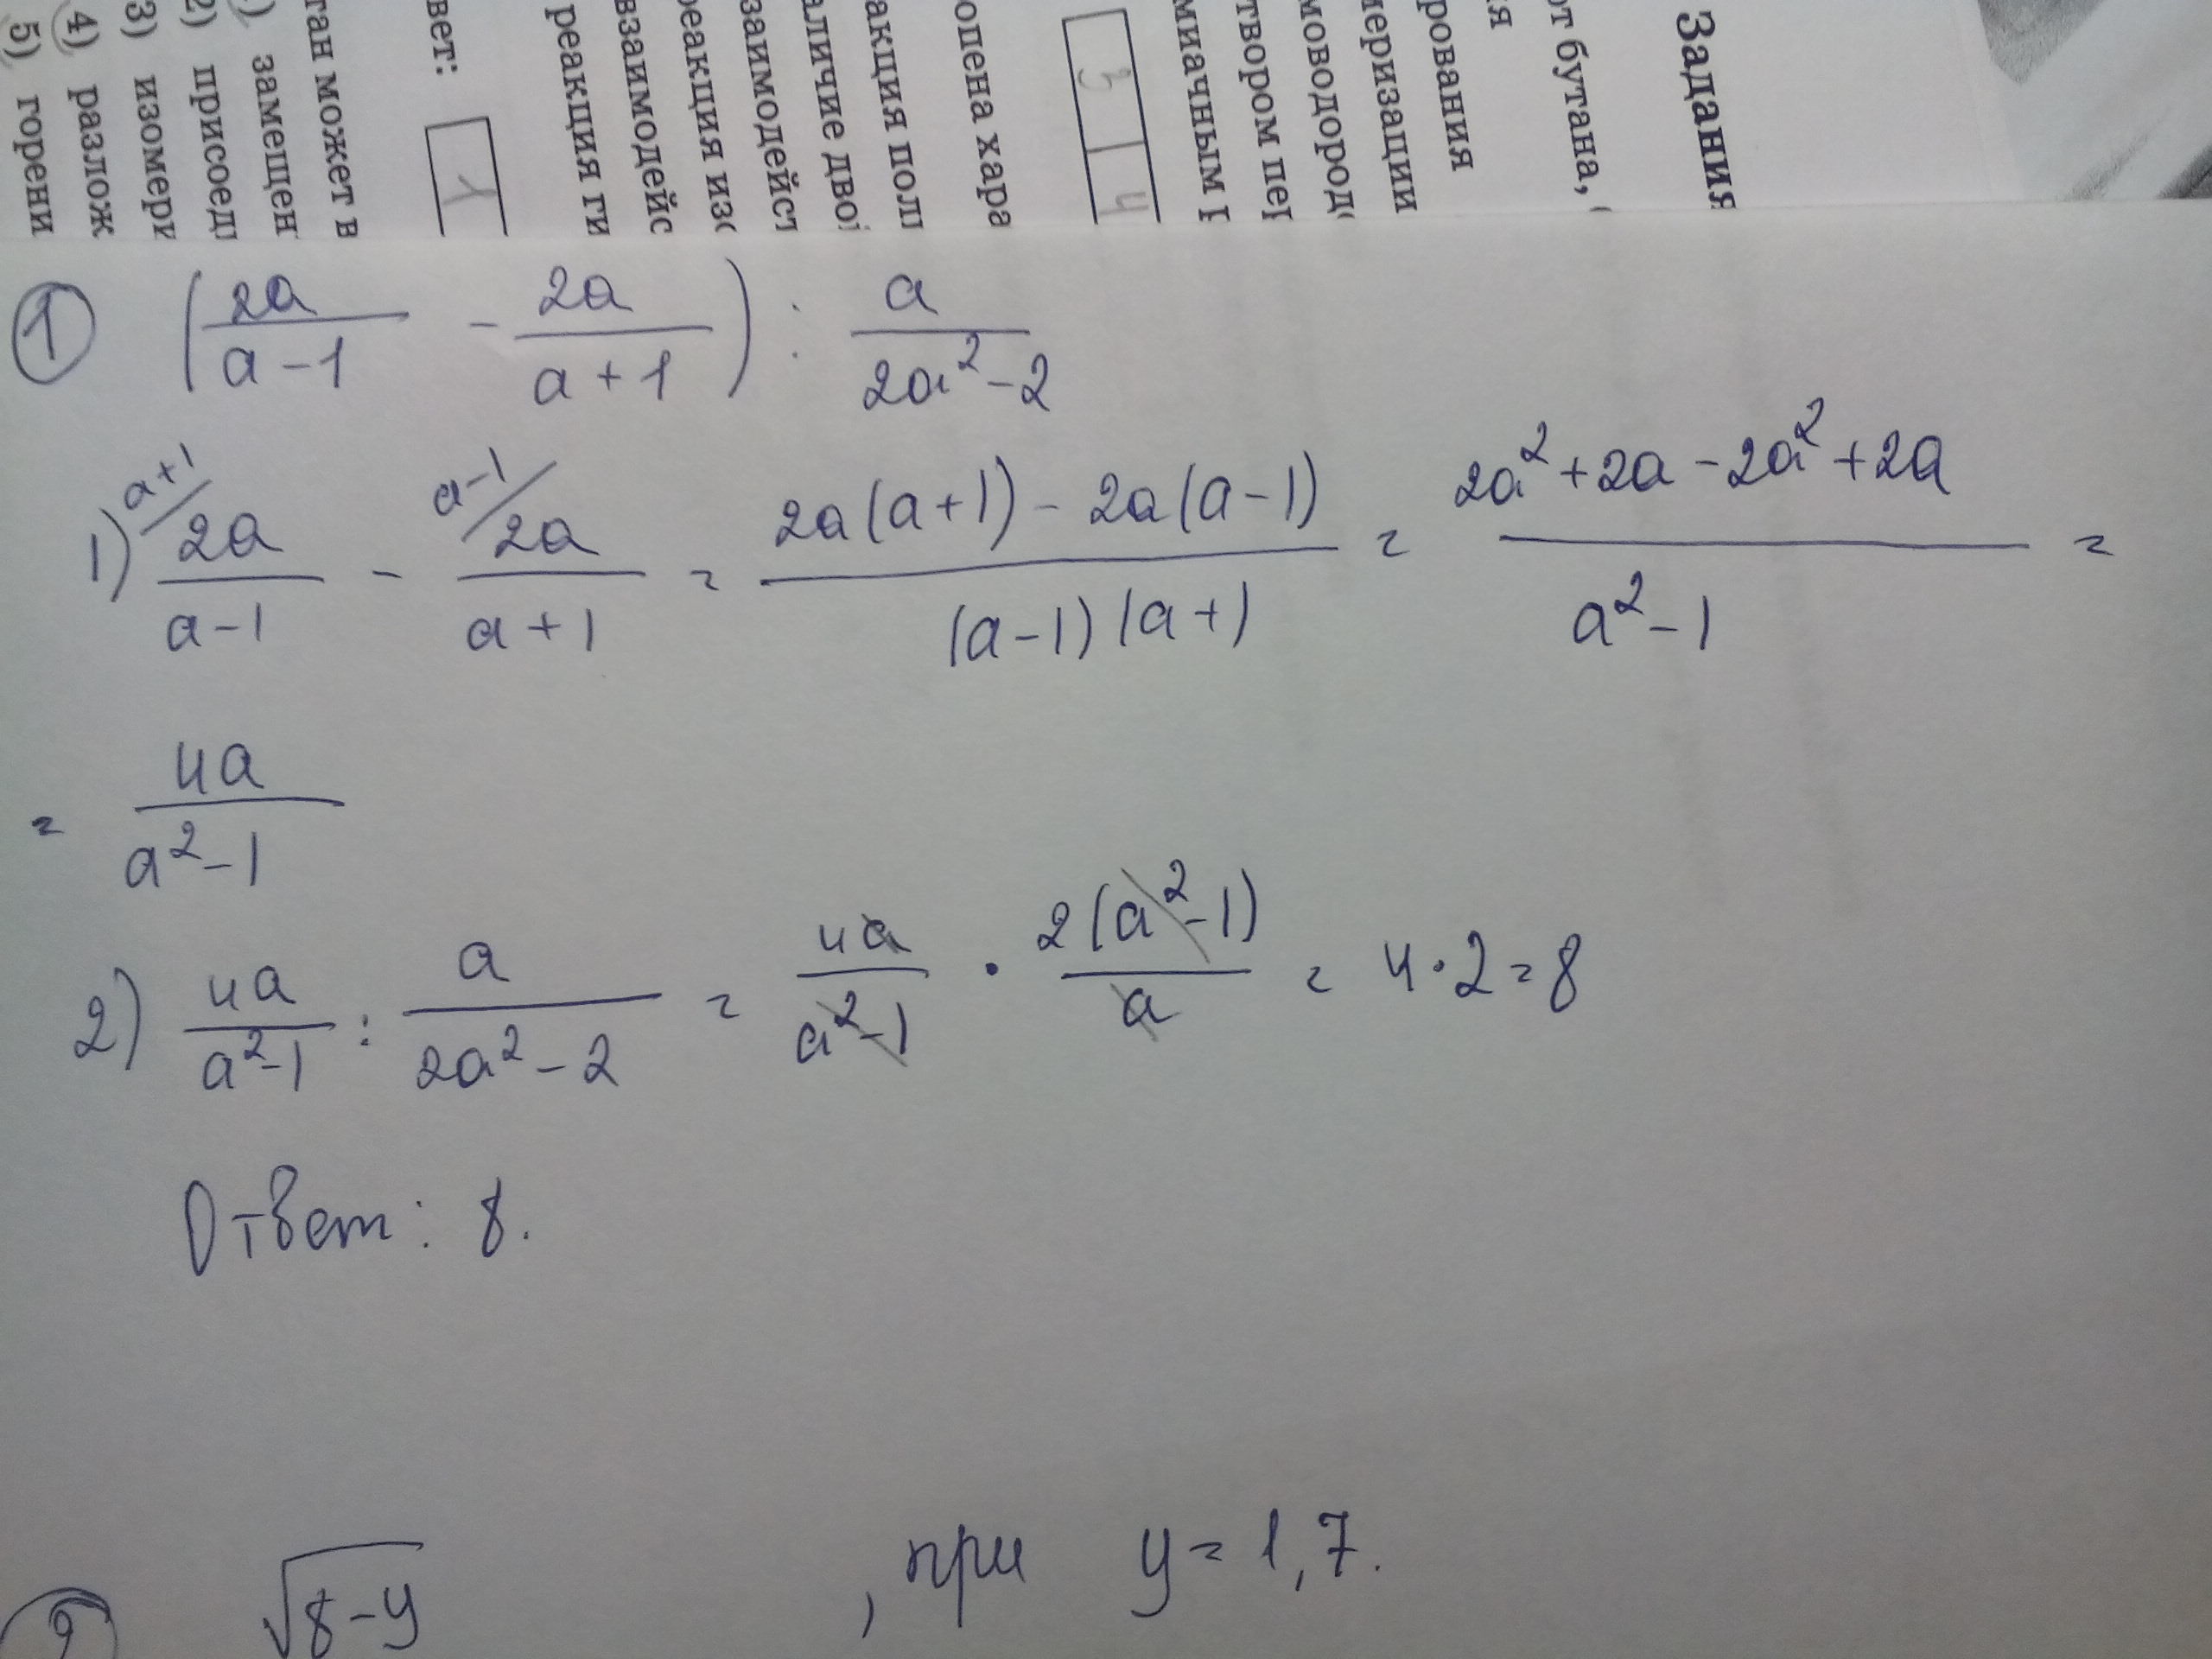 Задания
от бутана,
ия
рования
меризации
мовододородо
твором пер
миачным р
3 4
опена хара
акция пол
аличие двой
заимодейст
реакция изо
взаимодейс
реакция ги
вет: 1
тан может в
замещен
2) присоед
3) изомери
4) разлож
5) горени
1 (2a/(a-1) - 2a/(a+1)) : a/(2a²-2)
1) a+1/ 2a/(a-1) - a-1/ 2a/(a+1) = (2a(a+1) - 2a(a-1))/((a-1)(a+1) = (2a²+2a-2a²+2a)/(a²-1) =
= 4a/(a²-1)
2) 4a/(a²-1) : a/(2a²-2) = 4a/(a²-1) · 2(a²-1)/a = 4·2=8
Ответ: 8.
√8-y , при y=1,7.